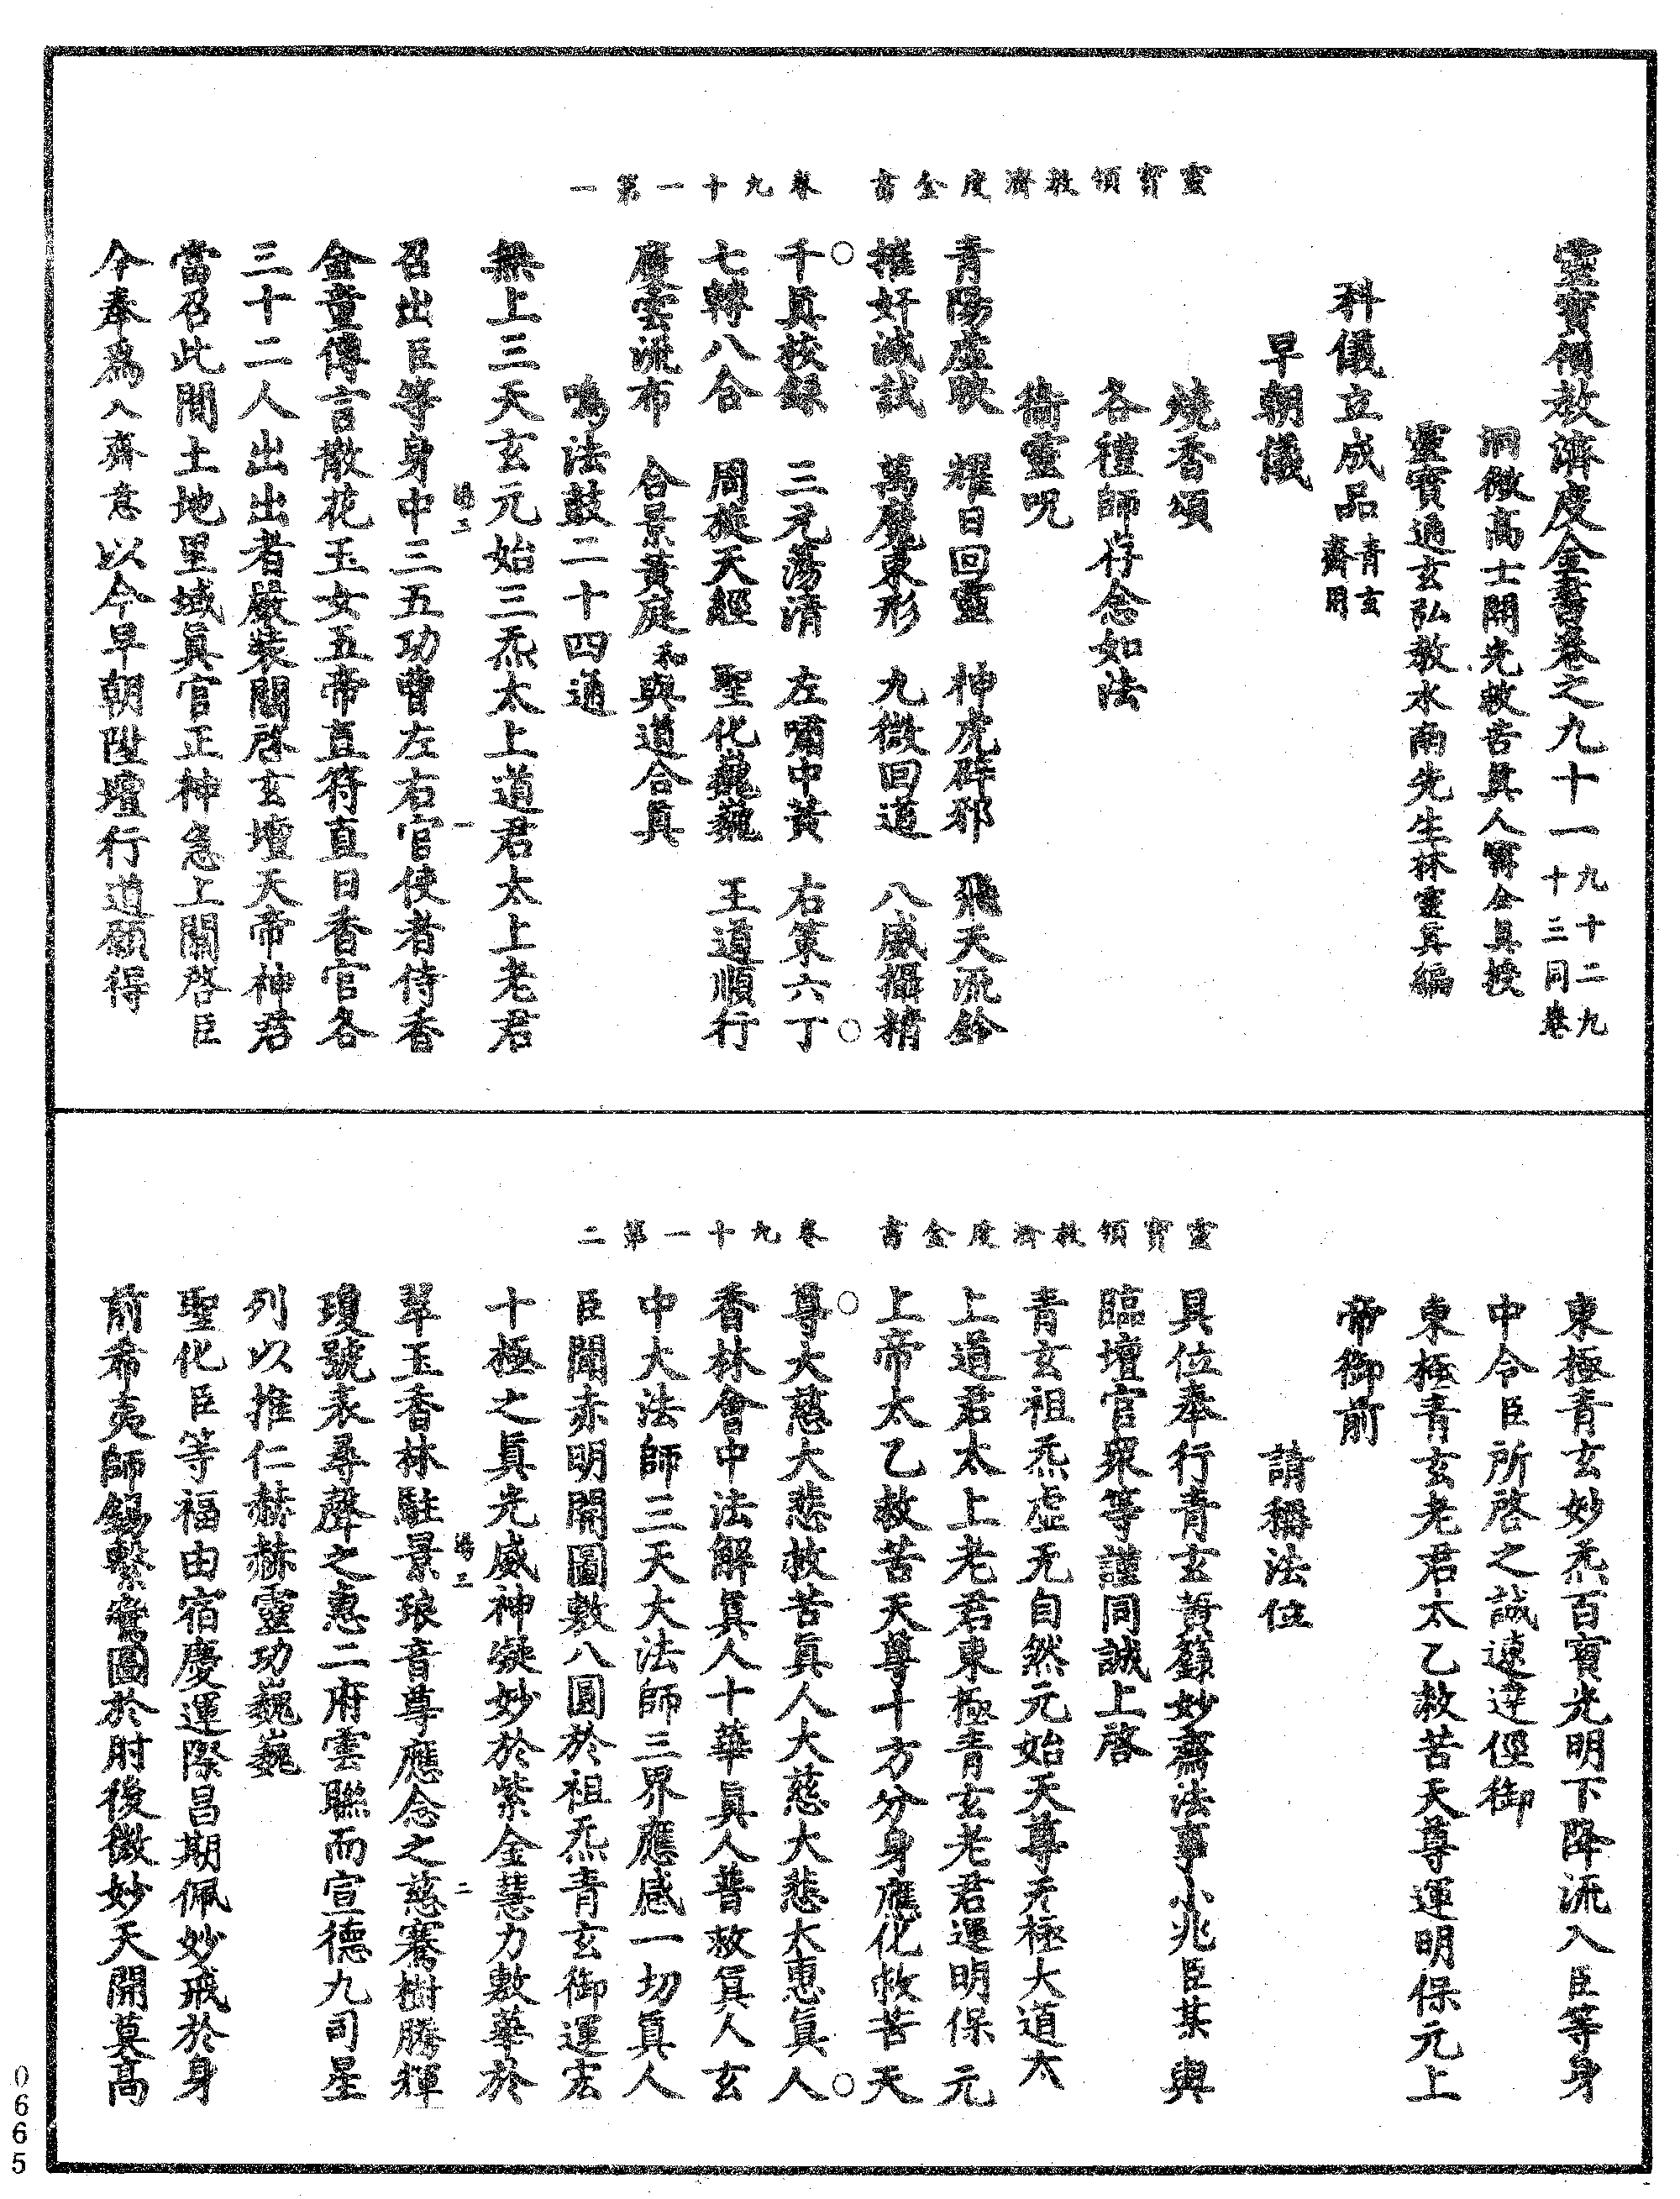 靈寶領教濟度金書 卷九十一第一
靈寶領教濟度金書卷之九十一九十二九十三同卷
洞微高士開光救苦眞人甯全眞授
靈寶通玄弘教水南先生林靈眞編
科儀立成品青玄齋用
早朝儀
燒香頌
各禮師存念如法
衛靈呪
青陽虛映 耀日回靈 神虎辟邪 飛天流鈴
摧奸滅試 萬魔束形 九微回道 八威攝精
千眞校錄 三元蕩清 左嘯中黃 右策六丁
七轉八合 周旋天經 聖化巍巍 王道順行
慶雲流布 合景黃庭 和與道合眞
鳴法鼓二十四通
無上三天玄元始三炁太上道君太上老君
鳴二 一
召出臣等身中三五功曹左右官使者侍香
金童傳言散花玉女五帝直符直日香官各
三十二人出出者嚴裝關啓玄壇天帝神君
當召此間土地里域眞官正神急上關啓臣
今奉爲入齋意以今早朝陞壇行道願得
靈寶領教濟度金書 卷九十一第二
東極青玄妙炁百寶光明下降流入臣等身
中令臣所啓之誠速達徑御
東極青玄老君太乙救苦天尊運明保元上
帝御前
請稱法位
具位奉行青玄黃籙妙齋法事小兆臣某與
臨壇官衆等謹同誠上啓
青玄祖炁虛无自然元始天尊无極大道太
上道君太上老君東極青玄老君運明保元
上帝太乙救苦天尊十方分身應化救苦天
尊大慈大悲救苦眞人大慈大悲大惠眞人
香林會中法解眞人十華眞人普救眞人玄
中大法師三天大法師三界應感一切眞人
臣聞赤明開圖敷八圓於祖炁青玄御運宏
十極之眞光威神凝妙於紫金慧力敷華於
鳴二 二
翠玉香林駐景琅音尊應念之慈騫樹騰輝
瓊號表尋聲之惠二府雲聯而宣德九司星
列以推仁赫赫靈功巍巍
聖化臣等福由宿慶運際昌期佩妙戒於身
前希夷師錫繫寶圖於肘後微妙天開莫高
0665